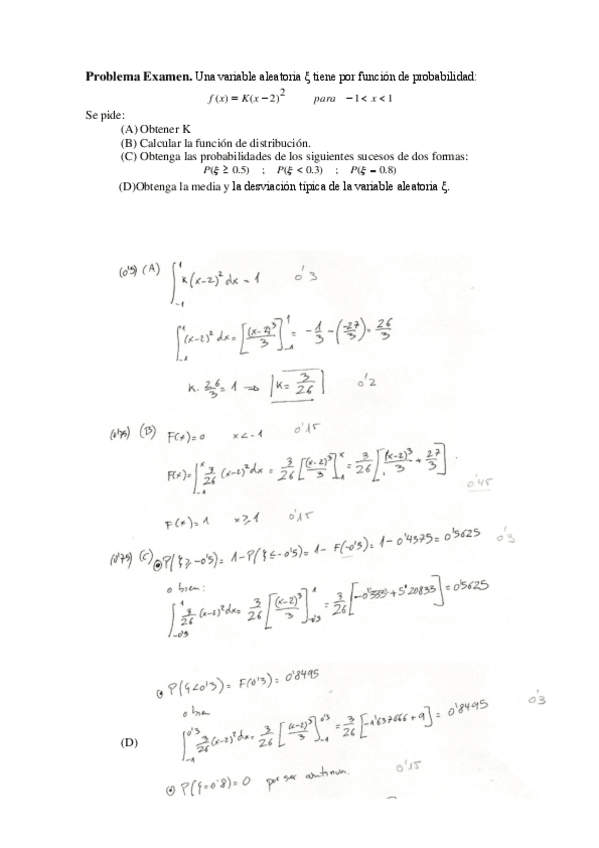 Problema Examen. Una variable aleatoria ξ tiene por función de probabilidad:
f(x) = K(x − 2)² para −1 < x < 1
Se pide:
(A) Obtener K
(B) Calcular la función de distribución.
(C) Obtenga las probabilidades de los siguientes sucesos de dos formas:
P(ξ ≥ 0.5) ; P(ξ < 0.3) ; P(ξ = 0.8)
(D)Obtenga la media y la desviación típica de la variable aleatoria ξ.
(0'5) (A) ∫₋₁¹ K(x-2)² dx = 1 0'3
∫₋₁¹ (x-2)² dx = [(x-2)³/3]₋₁¹ = -1/3 - (-27/3) = 26/3
K · 26/3 = 1 ⇒ K = 3/26 0'2
(0'75) (B) F(x) = 0 x < -1 0'15
F(x) = ∫₋₁ˣ 3/26 (x-2)² dx = 3/26 [(x-2)³/3]₋₁ˣ = 3/26 [(x-2)³/3 + 27/3] .
0'45
F(x) = 1 x ≥ 1 0'15
(0'75) (C) P(ξ ≥ -0'5) = 1 - P(ξ ≤ -0'5) = 1 - F(-0'5) = 1 - 0'4375 = 0'5625 0'3
o bien:
∫₋₀'₅¹ 3/26 (x-2)² dx = 3/26 [(x-2)³/3]₋₀'₅¹ = 3/26 [-0'333 + 5'20833] = 0'5625
P(ξ < 0'3) = F(0'3) = 0'8495
0'3
o bien
(D) ∫₋₁⁰'³ 3/26 (x-2)² dx = 3/26 [(x-2)³/3]₋₁⁰'³ = 3/26 [-1'637666 + 9] = 0'8495
P(ξ = 0'8) = 0 por ser continua. 0'15